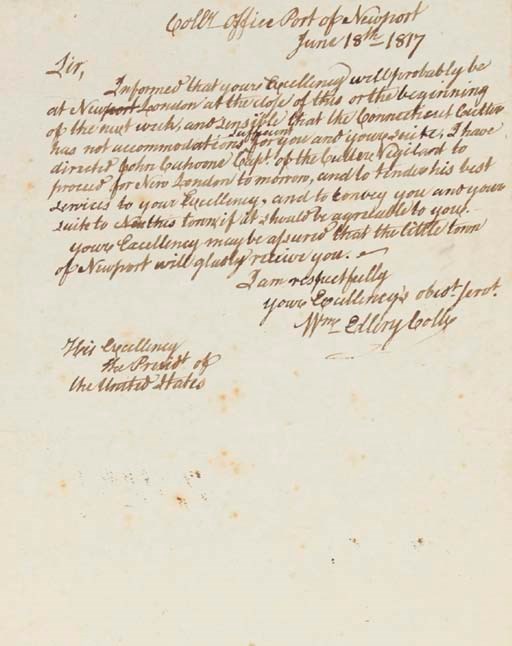 Collrs Office Port of Newport
June 18th 1817
Sir,
Informed that your Excellency will probably be
at Newport London at the close of this or the beginning
of the next week, and sensible that the Connecticut Cutter
has not accommodations sufficient for you and your suite, I have
directed John Cahoone Capt. of the Cutter Vigilant to
proceed for New London to morrow, and to tender his best
services to your Excellency, and to convey you and your
suite to this town, if it should be agreeable to you.
your Excellency may be assured that the little town
of Newport will gladly receive you.
I am respectfully
your Excellency's obedt. servt.
Wm. Ellery Collr
His Excellency
the Presidt of
the United States